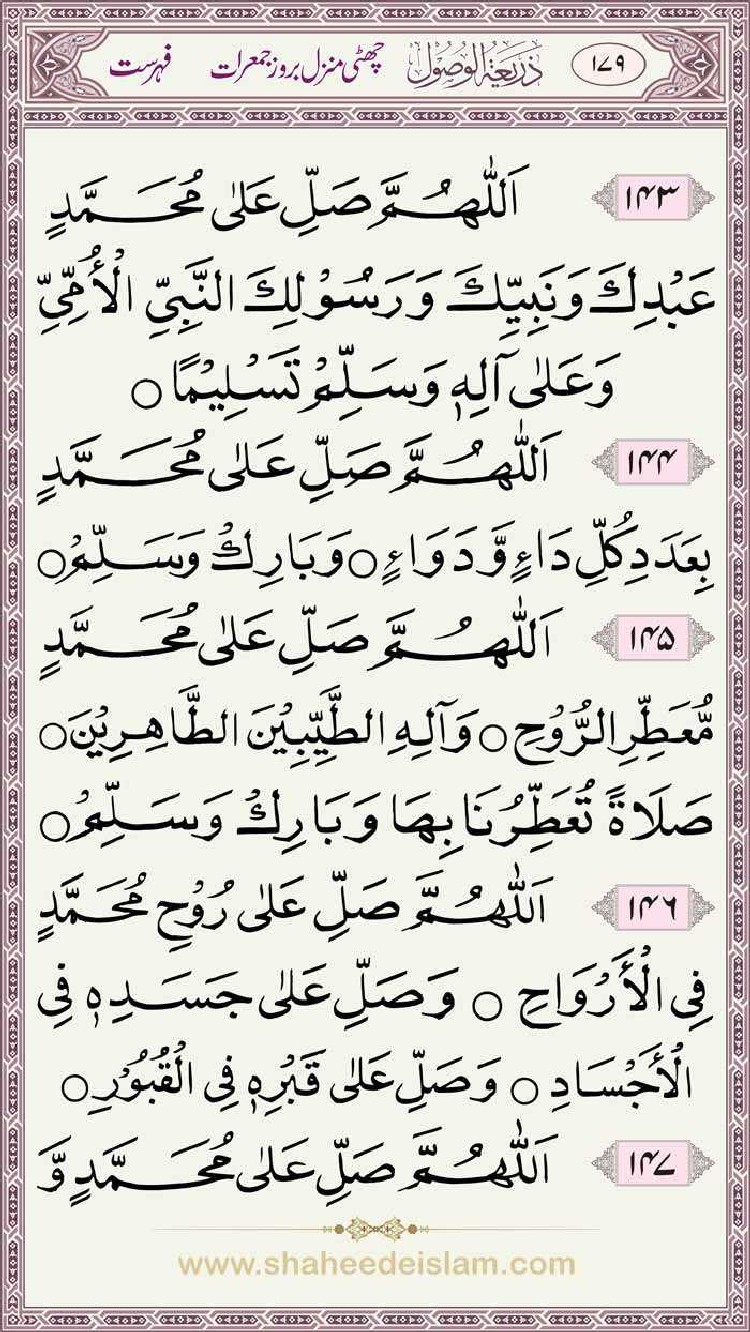 ۱۷۹ ذَرِیعَۃُ الْوُصُوْل چھٹی منزل بروز جمعرات فہرست
۱۴۳ اَللّٰهُمَّ صَلِّ عَلٰی مُحَمَّدٍ
عَبْدِكَ وَنَبِيِّكَ وَرَسُوْلِكَ النَّبِيِّ الْأُمِّيِّ
وَعَلٰی آلِهٖ وَسَلِّمْ تَسْلِيْمًا ○
۱۴۴ اَللّٰهُمَّ صَلِّ عَلٰی مُحَمَّدٍ
بِعَدَدِ كُلِّ دَاءٍ وَّدَوَاءٍ ○ وَبَارِكْ وَسَلِّمْ ○
۱۴۵ اَللّٰهُمَّ صَلِّ عَلٰی مُحَمَّدٍ
مُّعَطِّرِ الرُّوْحِ ○ وَآلِهِ الطَّيِّبِيْنَ الطَّاهِرِيْنَ ○
صَلَاةً تُعَطِّرُنَا بِهَا وَبَارِكْ وَسَلِّمْ ○
۱۴۶ اَللّٰهُمَّ صَلِّ عَلٰی رُوْحِ مُحَمَّدٍ
فِي الْأَرْوَاحِ ○ وَصَلِّ عَلٰی جَسَدِهٖ فِي
الْأَجْسَادِ ○ وَصَلِّ عَلٰی قَبْرِهٖ فِي الْقُبُوْرِ ○
۱۴۷ اَللّٰهُمَّ صَلِّ عَلٰی مُحَمَّدٍ وَّ
www.shaheedeislam.com